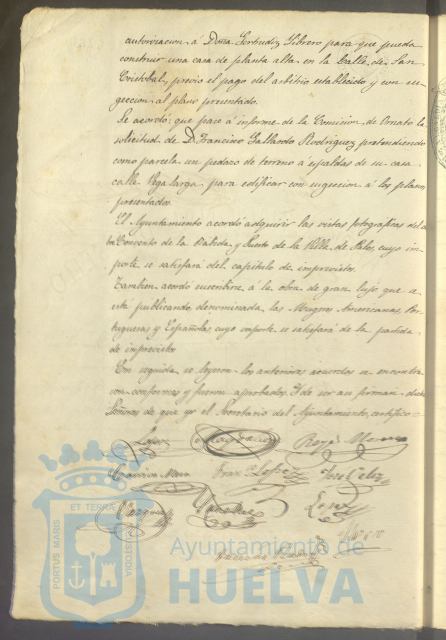 autorizacion á Doña Gertrudiz Librero para que pueda
construir una casa de planta alta en la Calle de San
Cristobal, previo el pago del arbitrio establecido y con su-
geccion al plano presentado.
Se acordó: que pase á informe de la Comision de Ornato la
solicitud de D. Francisco Gallardo Rodriguez pretendiendo
como parcela un pedazo de terreno á espaldas de su casa
calle Vega larga para edificar con sugecion á los planos
presentados.
El Ayuntamiento acordó adquirir las vistas fotograficas del
Convento de la Rabida y Puerto de la Villa de Palos, cuyo im
porte se satisfará del capitulo de imprevistos.
Tambien acordó suscribirse á la obra de gran lujo que se
está publicando denominada, las Mugeres Americanas, Por-
tuguesas y Españolas cuyo importe se satisfará de la partida
de imprevistos
En seguida se leyeron los anteriores acuerdos se encontra
ron conformes y fueron aprobados. Y de ser así firman dichos
Señores de que yo el Secretario del Ayuntamiento, certifico=
Lopez
Reyes Moreno
Franco Lopez
Jose Celiz
Vazquez
Lopez
PORTUS MARIS ET TERRAE CUSTODIA
Ayuntamiento de
HUELVA